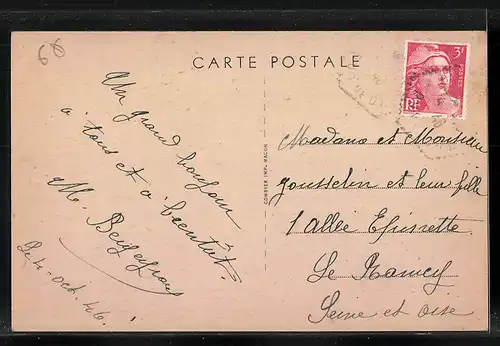 68
CARTE POSTALE
3F
POSTES
RF
Un grand bonjour
a tous et a bientôt.
M.
Le 4-oct. 46.
COMBIER IMP. MACON
Madame et Monsieur
Jousselin et leur fille
1 allée Epinette
Le Raincy
Seine et Oise